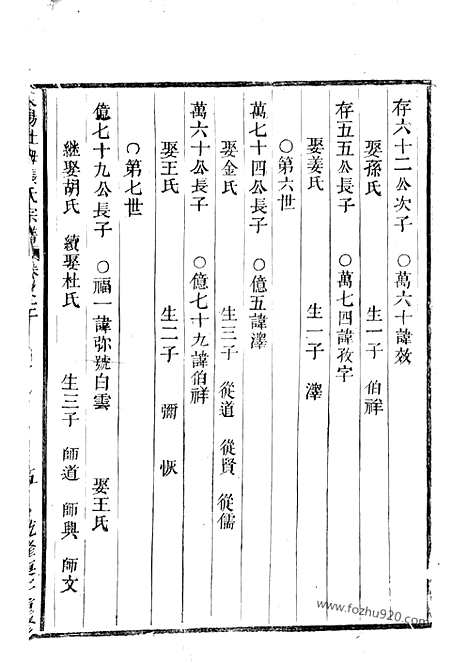 存六十二公次子　○萬六十諱效
娶孫氏　生一子　伯祥
存五五公長子　○萬七四諱孜字
娶姜氏　生一子　澤
○第六世
萬七十四公長子　○億五諱澤
娶金氏　生三子　從道　從賢　從儒
萬六十公長子　○億七十九諱伯祥
娶王氏　生二子　彌　恢
○第七世
億七十九公長子　○福一諱弥號白雲　娶王氏
継娶胡氏　續娶杜氏　生三子　師道　師興　師文
氏宗譜
www.fozhu920.com